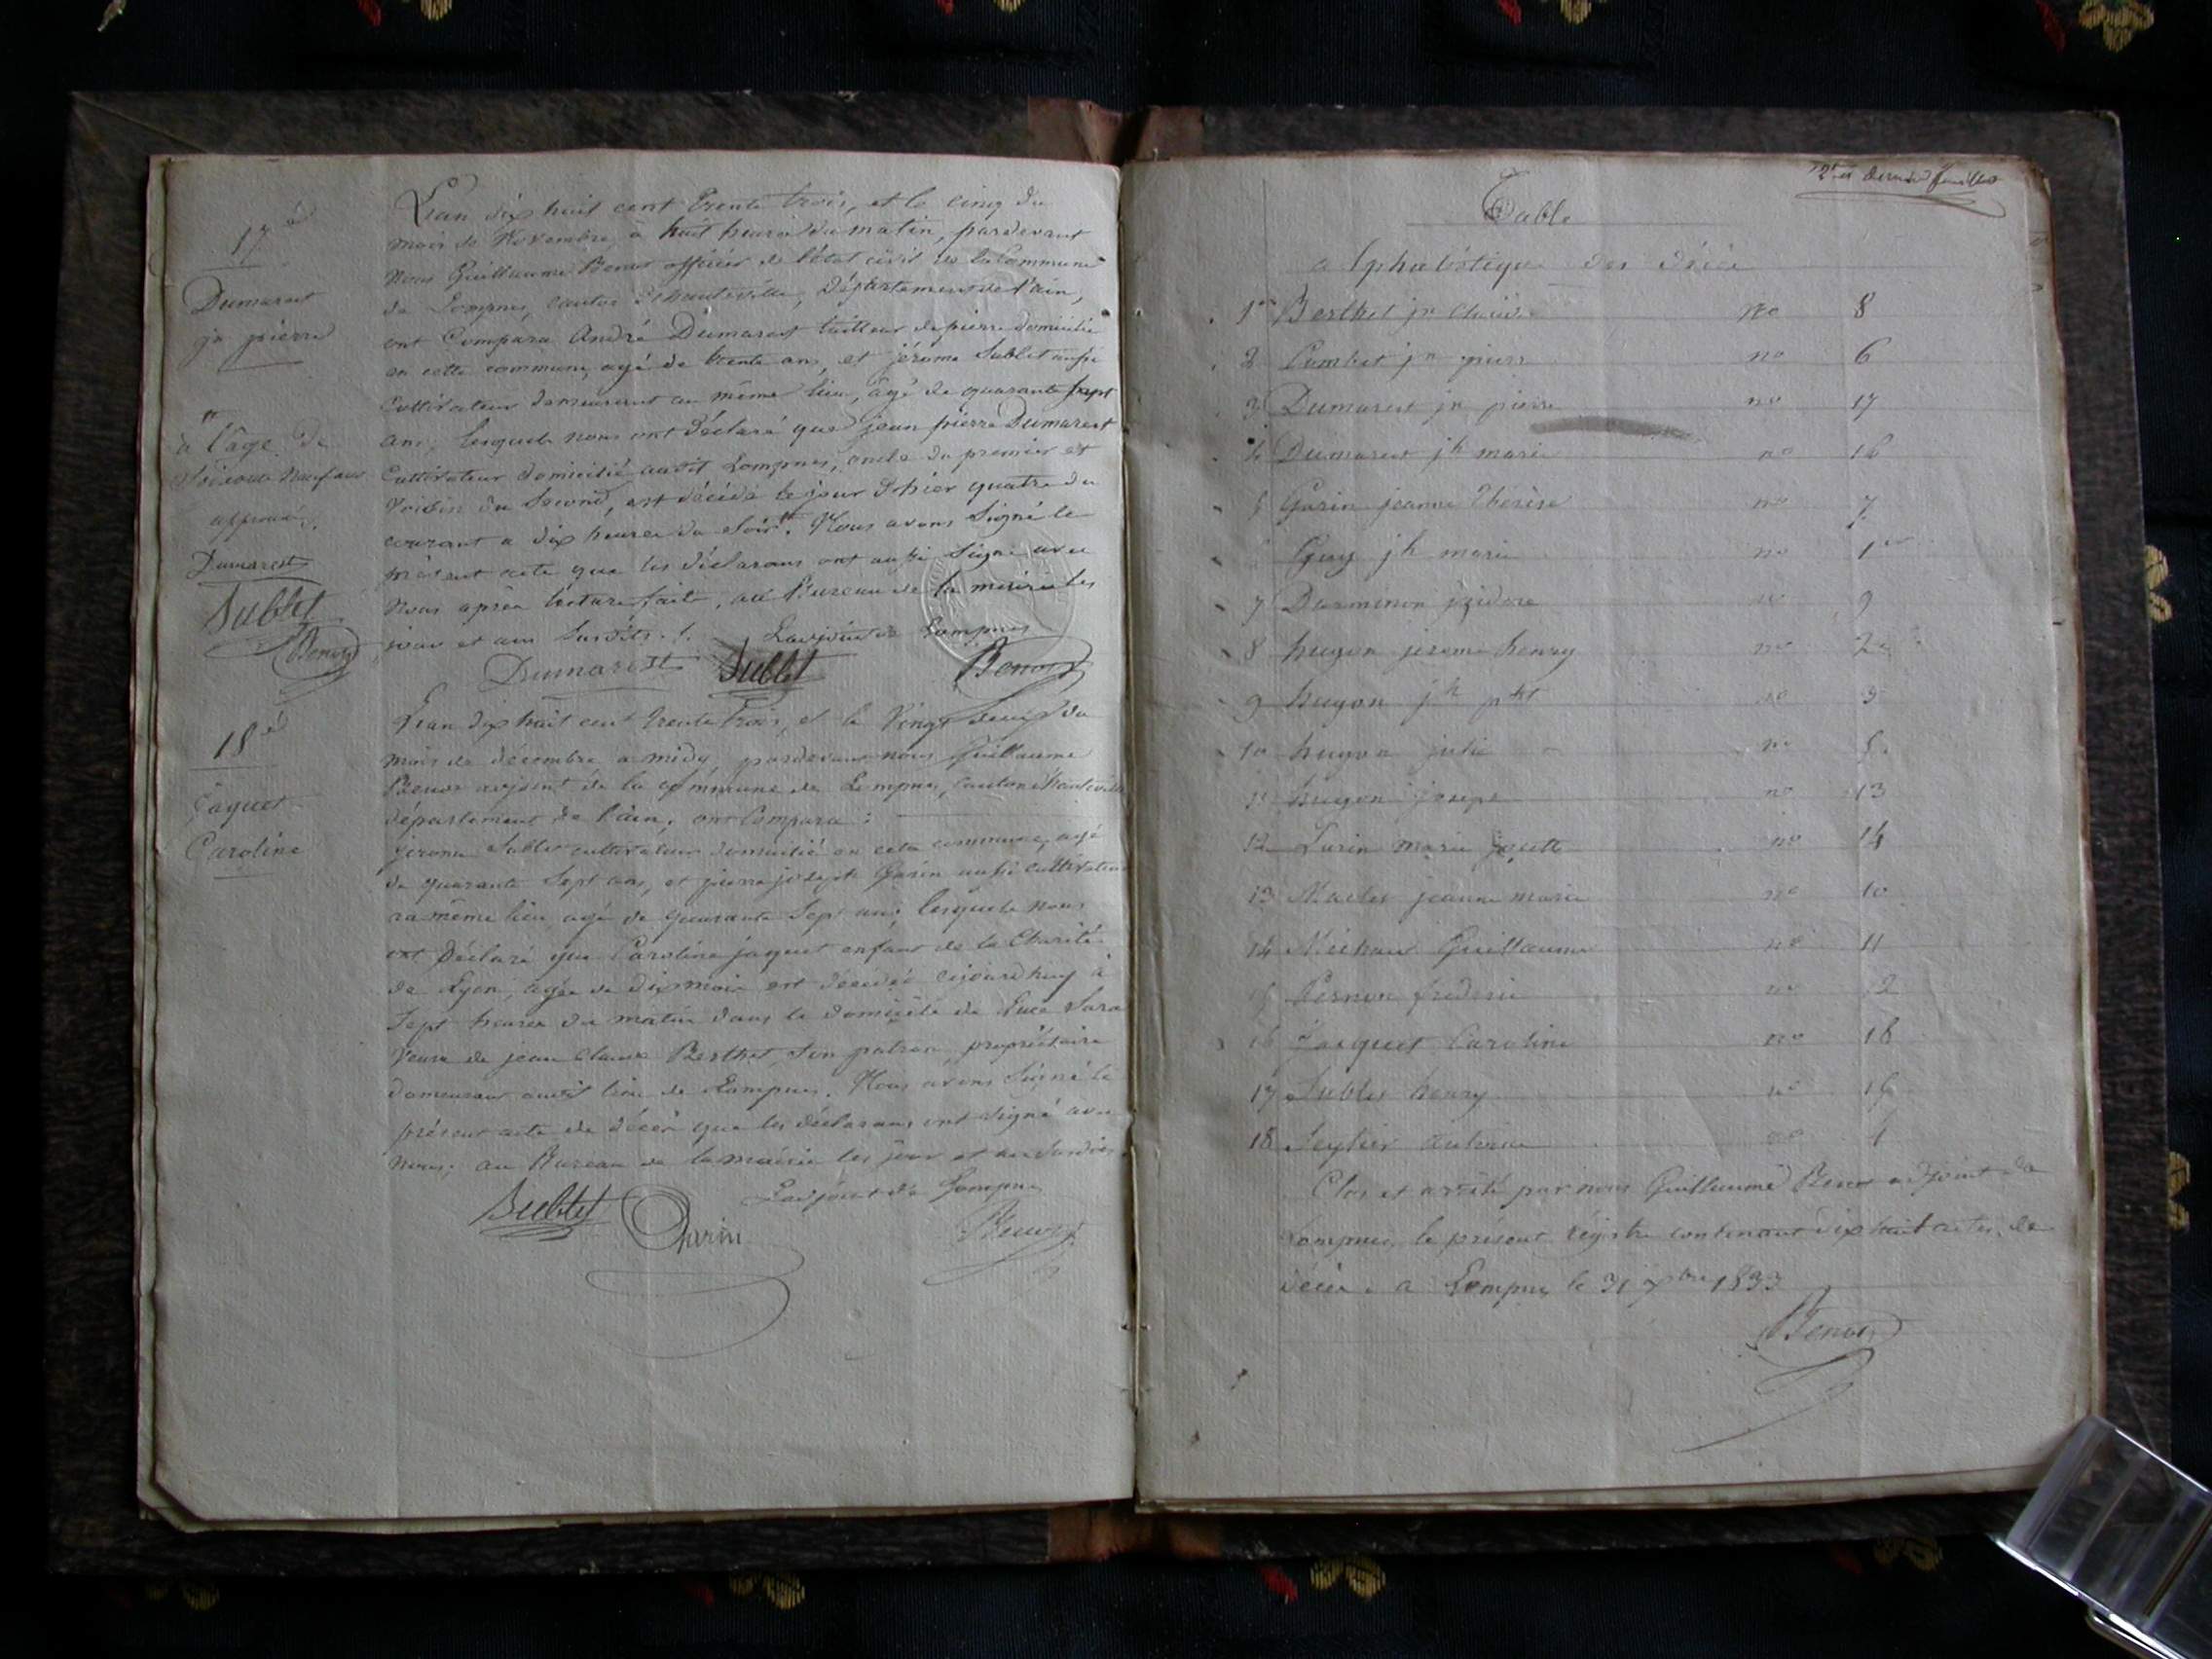 17e
Dumarest
jn pierre
a l'âge de
Soixante Neuf ans
approuvé.
Dumarest
Sublet
Benoit
L'an dix huit cent trente trois, et le cinq du
mois de Novembre, à huit heures du matin, pardevant
Nous Guillaume Benoit officier de l'état civil de la Commune
de Lompnes, canton d'hauteville, Département de l'ain,
ont Comparu André Dumarest tailleur de pierre domicilié
en cette commune, agé de trente ans, et jérome Sublet aussi
Cultivateur demeurant au même lieu, âgé de quarante sept
ans, lesquels nous ont déclaré que jean pierre Dumarest
Cultivateur domicilié audit Lompnes, oncle du premier et
Voisin du Second, est décédé le jour d'hier quatre du
courant a dix heures du Soir. Nous avons Signé le
présent acte que les déclarans ont aussi Signé avec
Nous après lecture faite, au Bureau de la mairie les
jour et an Susdits. Ladjoint de Lompnes
Dumarest Sublet Benoit
18e
Jaquet
Caroline
L'an dix huit cent trente trois, et le Vingt deux du
mois de décembre a midy, pardevant nous Guillaume
Benoit adjoint de la commune de Lompnes, canton d'hauteville
département de l'ain, ont Comparu :
jerome Sublet cultivateur domicilié en cette commune, agé
de quarante Sept ans, et pierre joseph Garin aussi cultivateur
au même lieu, agé de quarante Sept ans, lesquels nous
ont Déclaré que Caroline jaquet enfant de la Charité
de Lyon, agée de dix mois est décédée aujourd'huy à
Sept heures du matin dans le domicile de Luce Sara
Veuve de jean Claude Berthet, Son patron, propriétaire
demeurant audit lieu de Lompnes. Nous avons Signé le
présent acte de décès que les déclarans ont Signé avec
nous, au Bureau de la mairie les jour et an Susdits.
Ladjoint de Lompnes
Sublet Garin Benoit
et dernier feuillet
Table
alphabétique des décès
1er Berthet jn Claude no 8
2 Combet jn pierre no 6
3 Dumarest jn pierre no 17
4 Dumarest jh marie no 16
5 Garin jeanne thérèse no 7
Guy jh marie no 1er
7 Darminon jzidore no 9
8 hugon jerome henry no 2e
9 hugon jh no 3
10 hugon julie no 5
11 hugon joseph no 13
12 Lurin marie no 14
13 jeanne marie no 10
14 Michaud Guillaume no 11
15 Pernon frederic no 12
16 Jacquet Caroline no 18
17 Sublet henry no 15
18 Seytier no 4
Clos et arrêté par nous Guillaume Benoit adjoint de
Lompnes, le présent régistre contenant dix huit actes de
décès. a Lompnes le 31 xbre 1833
Benoit